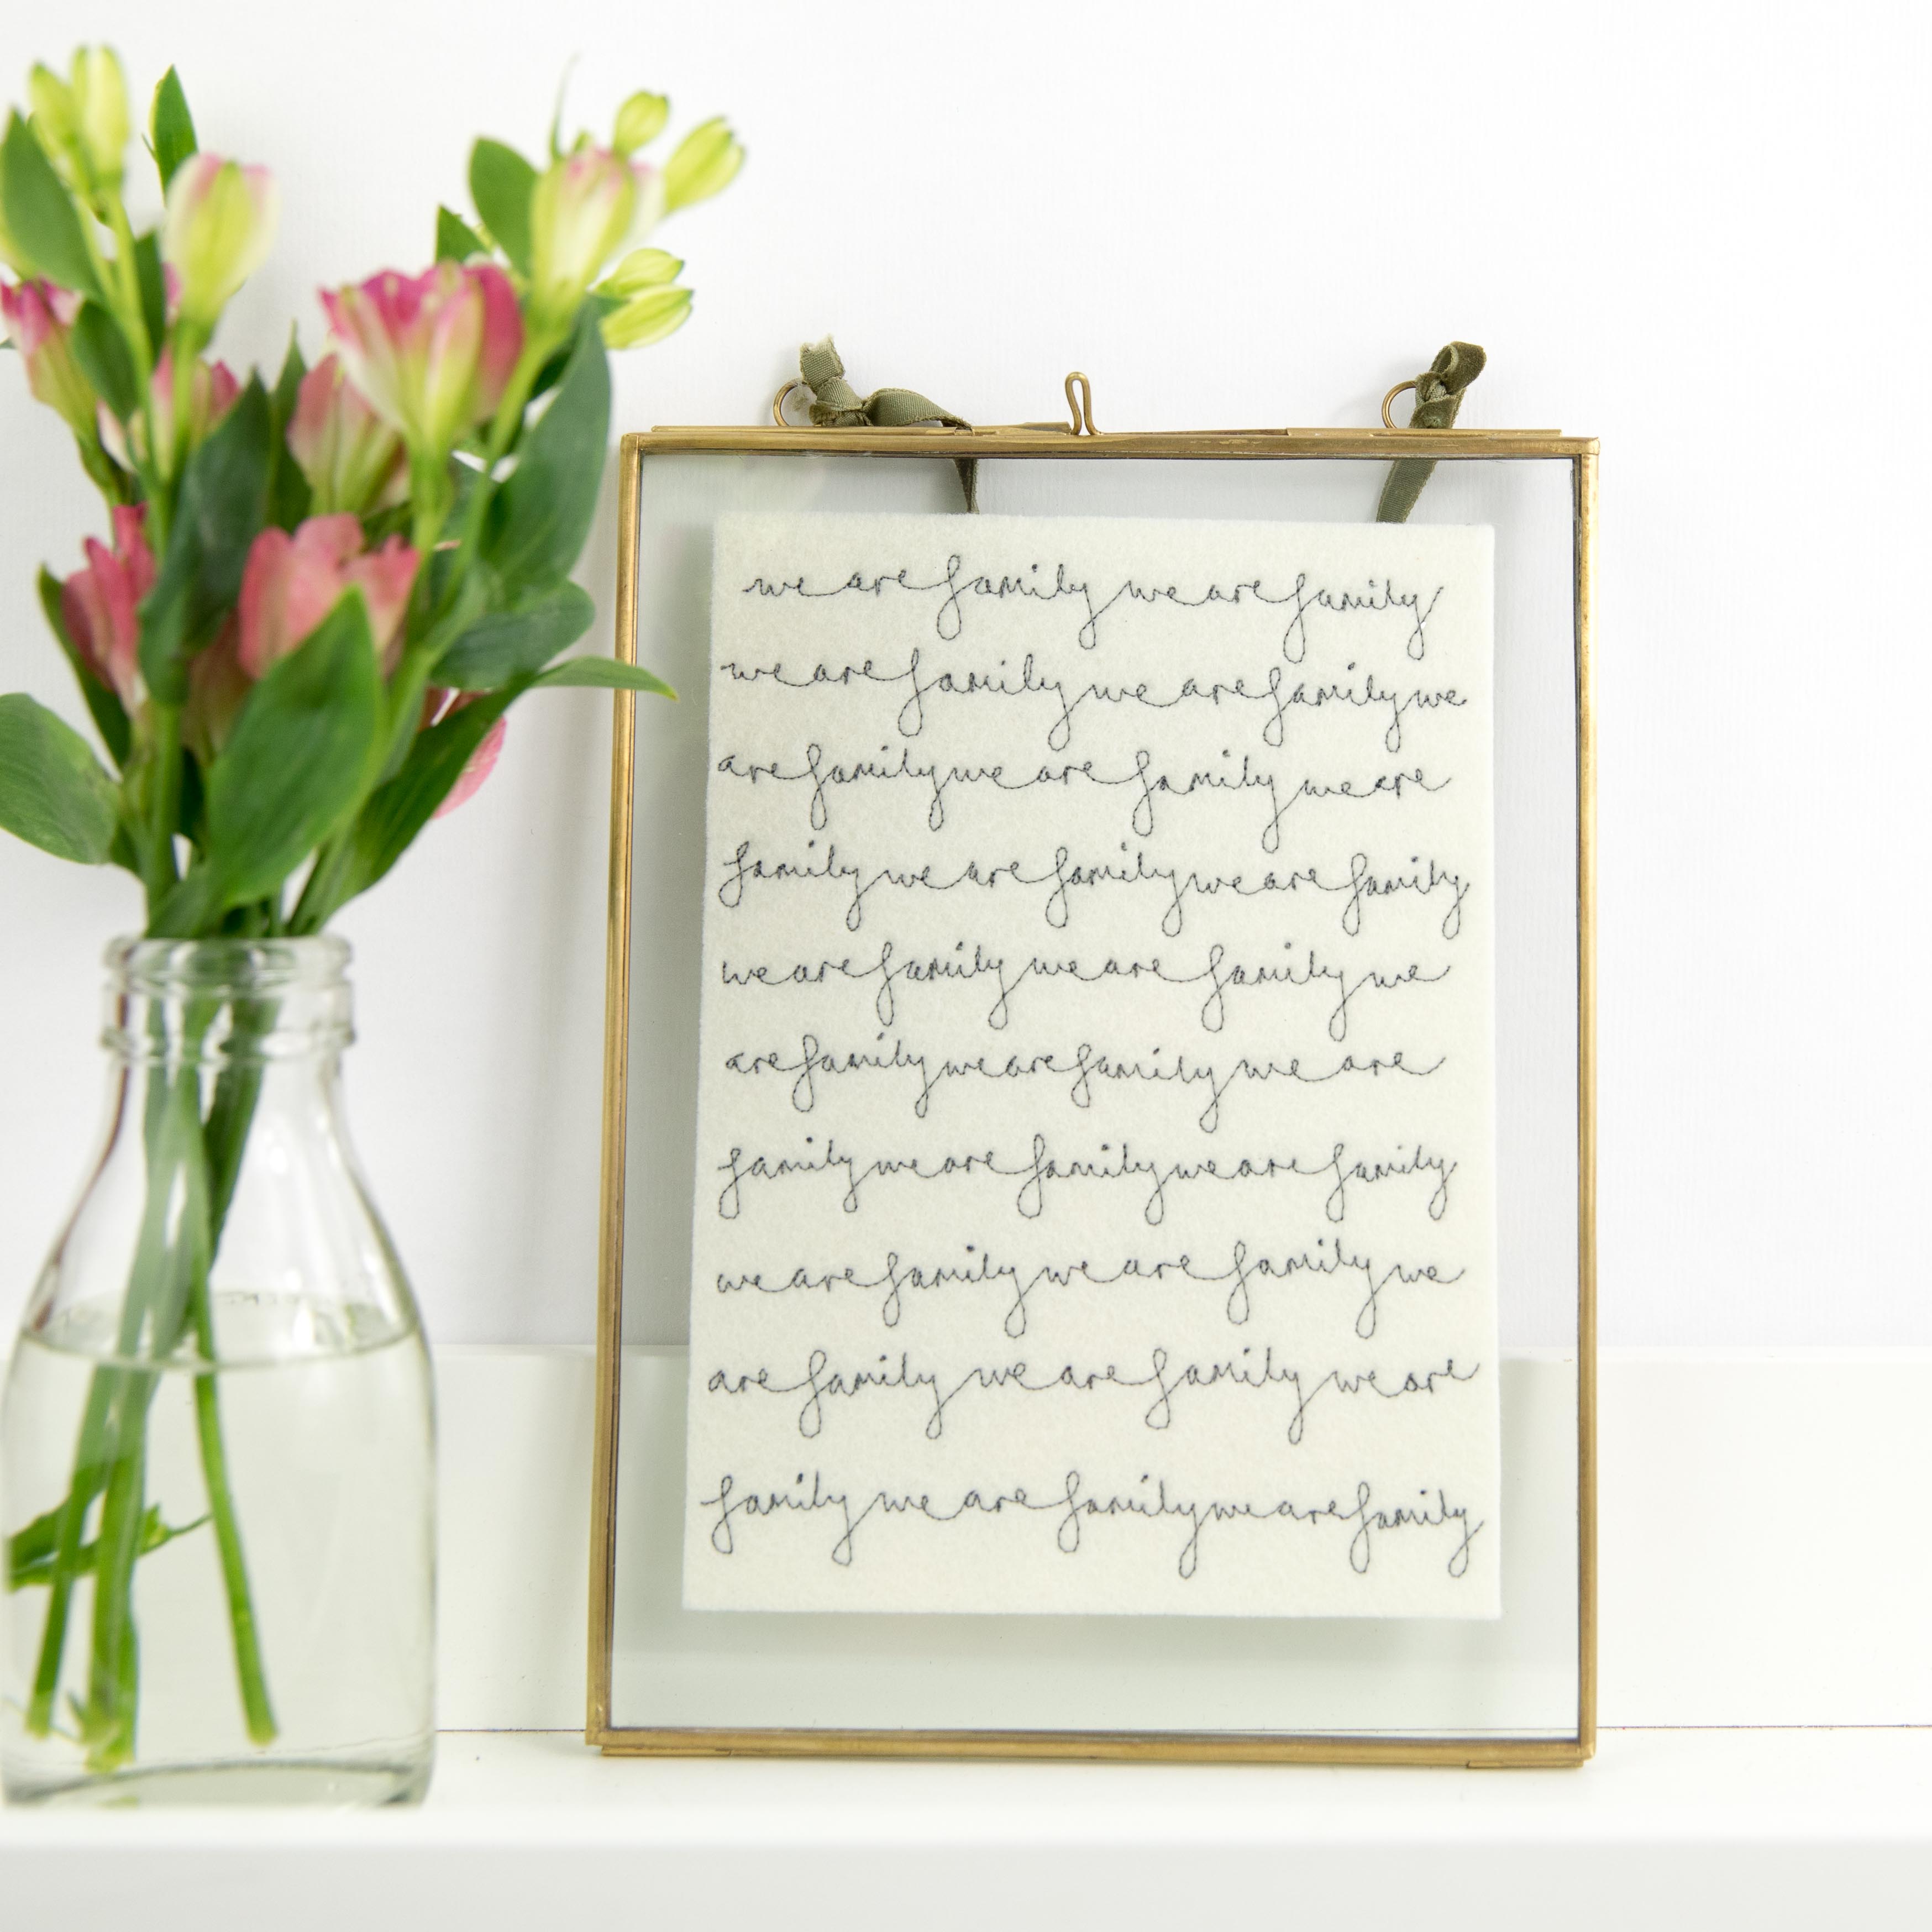 we are family we are family
we are family we are family we
are family we are family we are
family we are family we are family
we are family we are family we
are family we are family we are
family we are family we are family
we are family we are family we
are family we are family we are
family we are family we are family